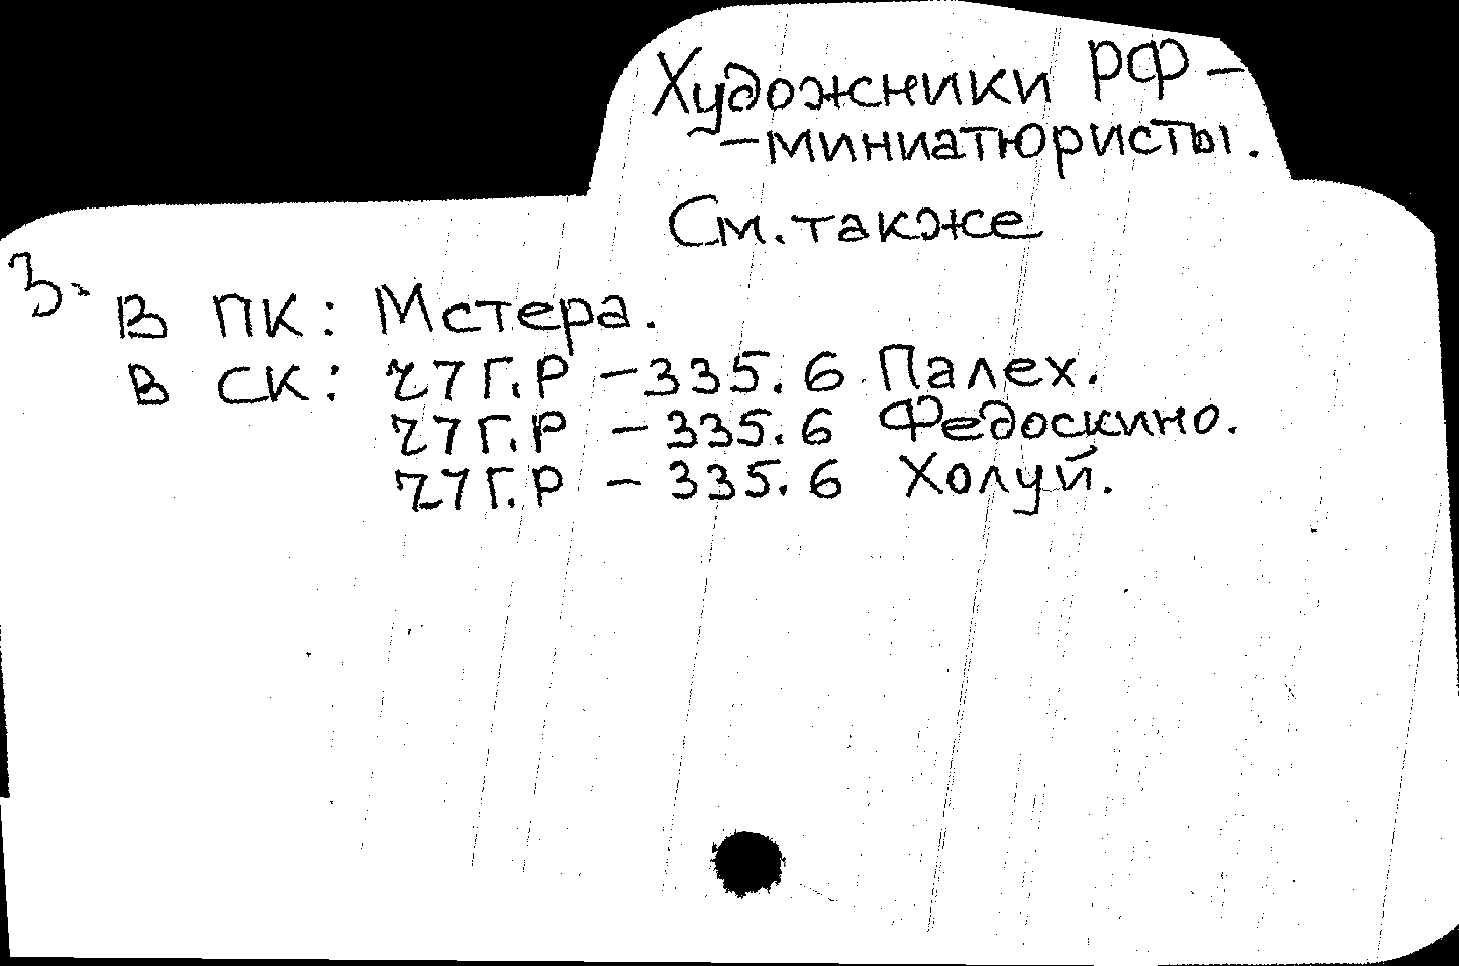 Художники РФ –
– миниатюристы.
См. также
3.
В ПК: Мстера.
В СК: 27Г.Р – 335.6 Палех.
27Г.Р – 335.6 Федоскино.
27Г.Р – 335.6 Холуй.